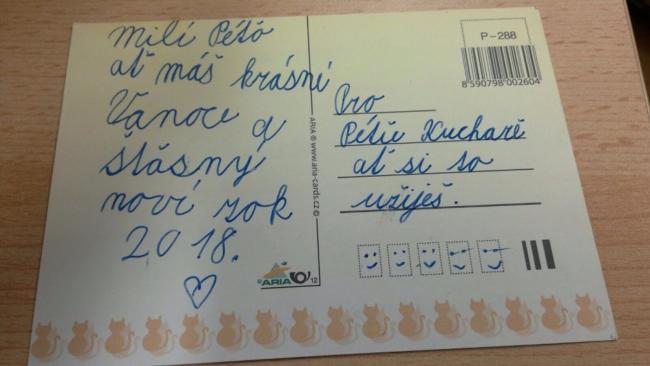 milí Péťo
ať máš krásné
Vánoce a
šťásný
noví rok
2018.
P-288
8 590798 002604
Pro
Pétu Kuchaře
ať si to
užiješ.
ARIA ® www.aria-cards.cz ©
ARIA
12